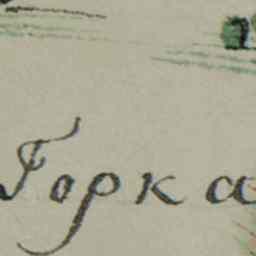 Горка